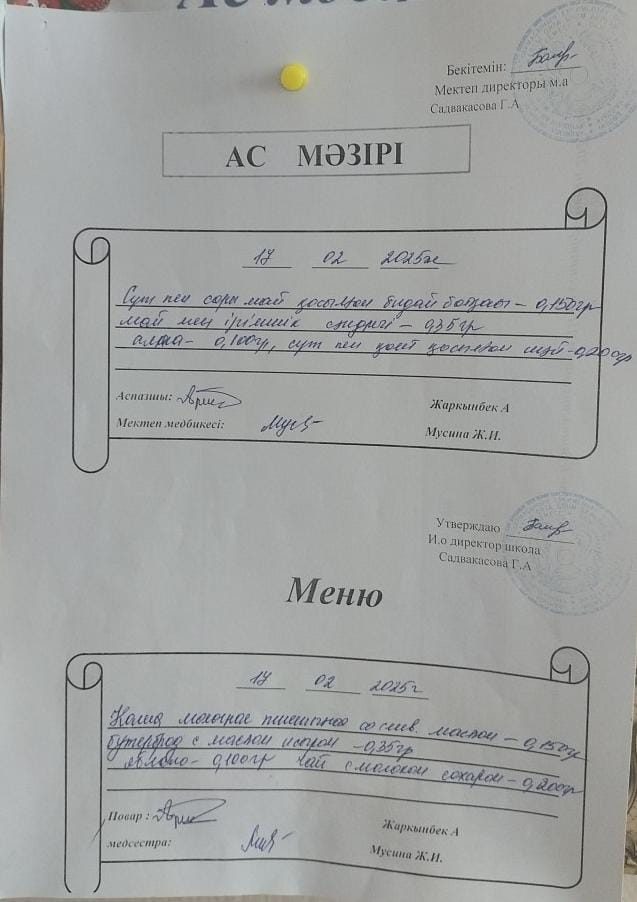 Бекітемін:
Мектеп директоры м.а
Садвакасова Г.А
АС МӘЗІРІ
17 02 2025ж
Сүт пен сары май қосылған бидай ботқасы - 0,150гр
май мен ірімшік - 0,35гр
алма - 0,100гр, сүт пен қант қосылған шәй - 0,200гр
Аспазшы:
Жаркынбек А
Мектеп медбикесі:
Мусина Ж.И.
Утверждаю
И.о директор школа
Садвакасова Г.А
Меню
17 02 2025г
Каша молочная пшеничная со слив. маслом - 0,150гр
бутерброд с маслом и сыром - 0,35гр
яблоко - 0,100гр чай с молоком сахаром - 0,200гр
Повар :
Жаркынбек А
медсестра:
Мусина Ж.И.